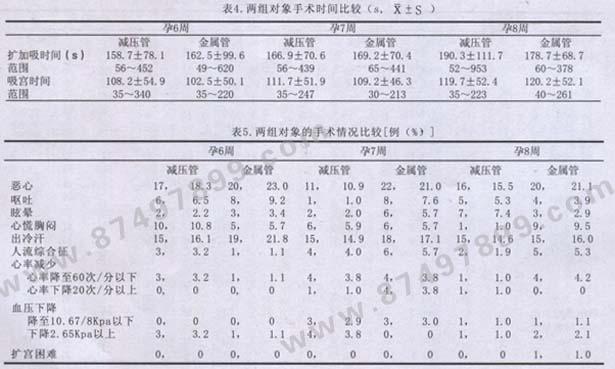 表4.两组对象手术时间比较（s, X̄±S ）
孕6周 孕7周 孕8周
减压管 金属管 减压管 金属管 减压管 金属管
扩加吸时间(s) 158.7±78.1 162.5±99.6 166.9±70.6 169.2±70.4 190.3±111.7 178.7±68.7
范围 56~452 49~620 56~439 65~441 52~953 60~378
吸宫时间 108.2±54.9 102.5±50.1 111.7±51.9 109.2±46.3 119.7±52.4 120.2±52.1
范围 35~340 35~220 35~247 30~213 35~223 40~261
表5.两组对象的手术情况比较[例（%）]
孕6周 孕7周 孕8周
减压管 金属管 减压管 金属管 减压管 金属管
恶心 17, 18.3 20, 23.0 11, 10.9 22, 21.0 16, 15.5 20, 21.1
呕吐 6, 6.5 8, 9.2 1, 1.0 8, 7.6 5, 5.3 4, 3.9
眩晕 2, 2.2 3, 3.4 2, 2.0 6, 5.7 7, 7.4 3, 2.9
心慌胸闷 10, 10.8 5, 5.7 6, 5.9 6, 5.7 1, 1.0 9, 9.5
出冷汗 15, 16.1 19, 21.8 15, 14.9 18, 17.1 15, 14.6 15, 16.0
人流综合征 3, 3.2 1, 1.1 4, 4.0 6, 5.7 2, 1.9 5, 5.3
心率减少
心率降至60次/分以下 3, 3.2 1, 1.1 4, 3.8 4, 3.8 1, 1.0 4, 4.2
心率下降20次/分以上 0, 0 0, 0 1, 1.0 4, 3.8 1, 1.0 0, 0
血压下降
降至10.67/8Kpa以下 0, 0 0, 0 3, 2.9 3, 3.0 1, 1.0 1, 1.1
下降2.65Kpa以上 3, 3.2 1, 1.1 4, 3.8 0, 0 1, 1.0 2, 2.1
扩宫困难 0, 0 0, 0 0, 0 0, 0 0, 0 1, 1.0
www.87497899.com
www.87497899.com